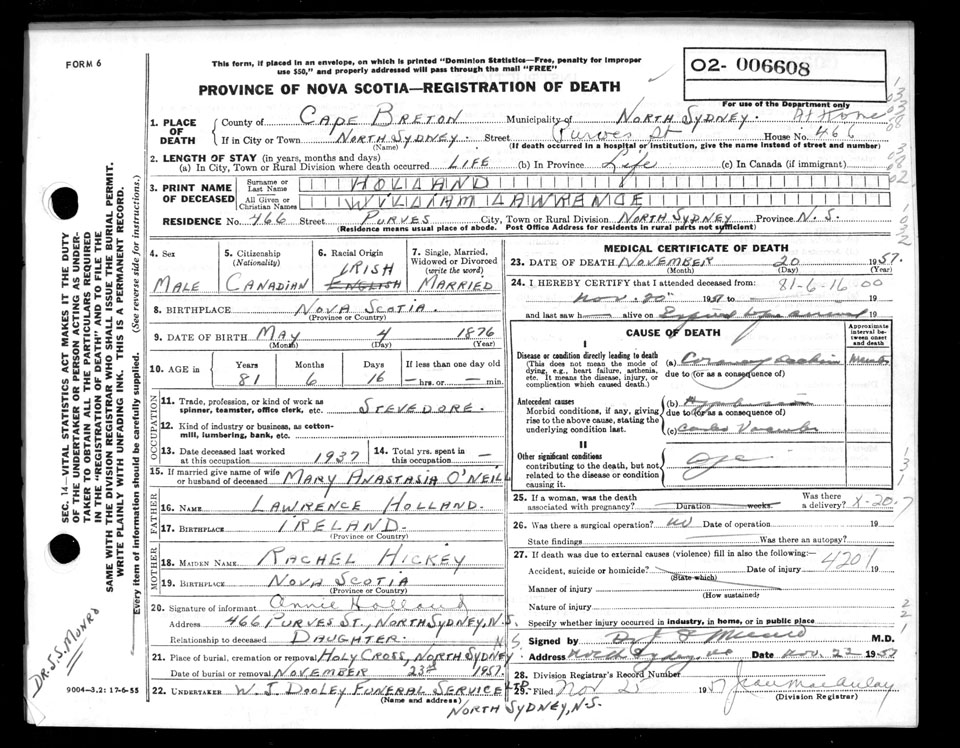 FORM 6
This form, if placed in an envelope, on which is printed "Dominion Statistics—Free, penalty for improper
use $50," and properly addressed will pass through the mail "FREE"
O2- 006608
PROVINCE OF NOVA SCOTIA—REGISTRATION OF DEATH
For use of the Department only
1. PLACE OF DEATH
County of CAPE BRETON Municipality of NORTH SYDNEY. At Home
If in City or Town NORTH SYDNEY. Street Purves St House No. 466
(Name) (If death occurred in a hospital or institution, give the name instead of street and number)
2. LENGTH OF STAY (in years, months and days)
(a) In City, Town or Rural Division where death occurred LIFE (b) In Province Life (c) In Canada (if immigrant)
3. PRINT NAME OF DECEASED
Surname or Last Name HOLLAND
All Given or Christian Names WILLIAM LAWRENCE
RESIDENCE No. 466 Street PURVES City, Town or Rural Division NORTH SYDNEY Province N.S.
(Residence means usual place of abode. Post Office Address for residents in rural parts not sufficient)
4. Sex MALE
5. Citizenship (Nationality) CANADIAN
6. Racial Origin IRISH ENGLISH
7. Single, Married, Widowed or Divorced (write the word) MARRIED
8. BIRTHPLACE NOVA SCOTIA.
(Province or Country)
9. DATE OF BIRTH MAY 4 1876
(Month) (Day) (Year)
10. AGE in Years 81 Months 6 Days 16 If less than one day old — hrs. or — min.
OCCUPATION
11. Trade, profession, or kind of work as spinner, teamster, office clerk, etc. STEVEDORE.
12. Kind of industry or business, as cotton-mill, lumbering, bank, etc.
13. Date deceased last worked at this occupation 1937
14. Total yrs. spent in this occupation —
15. If married give name of wife or husband of deceased MARY ANASTASIA O'NEILL
FATHER
16. NAME LAWRENCE HOLLAND.
17. BIRTHPLACE IRELAND.
(Province or Country)
MOTHER
18. MAIDEN NAME RACHEL HICKEY
19. BIRTHPLACE NOVA SCOTIA
(Province or Country)
20. Signature of informant Annie Holland
Address 466 PURVES ST., NORTH SYDNEY, N.S.
Relationship to deceased DAUGHTER.
21. Place of burial, cremation or removal HOLY CROSS, NORTH SYDNEY N.S.
Date of burial or removal NOVEMBER 23rd 1957.
22. UNDERTAKER W. J. DOOLEY FUNERAL SERVICE LTD.
(Name and address) NORTH SYDNEY, N.S.
MEDICAL CERTIFICATE OF DEATH
23. DATE OF DEATH NOVEMBER 20 1957.
(Month) (Day) (Year)
24. I HEREBY CERTIFY that I attended deceased from: 81-6-16-00
Nov. 20 1957 to 19
and last saw h alive on 19
CAUSE OF DEATH
Approximate interval between onset and death
I
Disease or condition directly leading to death
(This does not mean the mode of dying, e.g., heart failure, asthenia, etc. It means the disease, injury, or complication which caused death.)
(a) Coronary
due to (or as a consequence of)
Antecedent causes
Morbid conditions, if any, giving rise to the above cause, stating the underlying condition last.
(b)
due to (or as a consequence of)
(c)
II
Other significant conditions
contributing to the death, but not related to the disease or condition causing it.
25. If a woman, was the death associated with pregnancy? Duration weeks. Was there a delivery? X-20-7
26. Was there a surgical operation? no Date of operation 19
State findings Was there an autopsy?
27. If death was due to external causes (violence) fill in also the following:—
4201
Accident, suicide or homicide? Date of injury 19
(State which)
Manner of injury
(How sustained)
Nature of injury
Specify whether injury occurred in industry, in home, or in public place
Signed by M.D.
Address North Sydney Date Nov. 22 1957
28. Division Registrar's Record Number
29. Filed Nov 25 1957 Jean MacAulay
(Division Registrar)
SEC. 14—VITAL STATISTICS ACT MAKES IT THE DUTY
OF THE UNDERTAKER OR PERSON ACTING AS UNDER-
TAKER TO OBTAIN ALL THE PARTICULARS REQUIRED
IN THE "REGISTRATION OF DEATH" AND TO FILE THE
SAME WITH THE DIVISION REGISTRAR WHO SHALL ISSUE THE BURIAL PERMIT.
WRITE PLAINLY WITH UNFADING INK. THIS IS A PERMANENT RECORD.
Every item of information should be carefully supplied. (See reverse side for instructions.)
DR. S. S. MUNRO
9004-3.2: 17-6-55